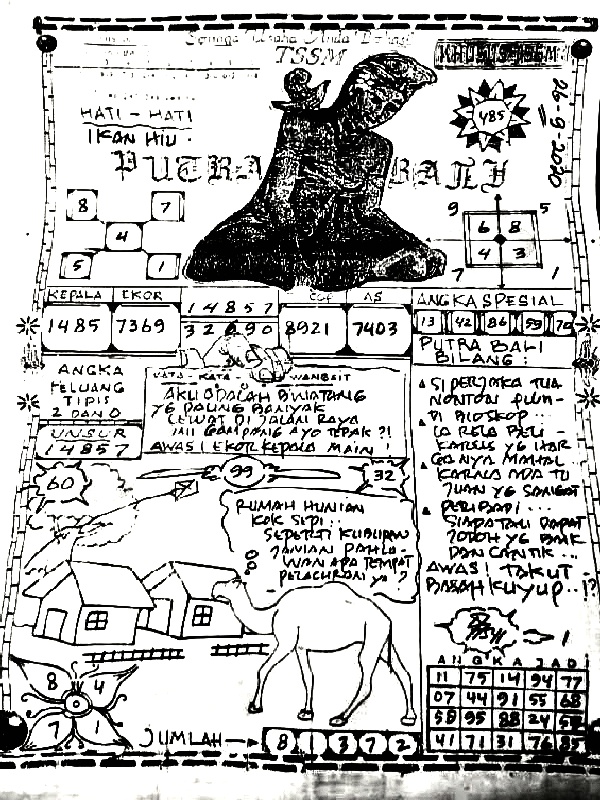 Semoga Usaha Anda Berhasil
TSSM
KHUSUS TSSM
HATI - HATI
IKAN HIU
485
26-9-2020
PUTRA BALI
8 7
4
5 1
9 5
6 8
4 3
7 1
KEPALA EKOR
1485 7369
14857
COP AS
8921 7403
ANGKA SPESIAL
13 42 86 59 70
PUTRA BALI
BILANG :
ANGKA
PELUANG
TIPIS
2 DAN 0
UNSUR
14857
KATA - KATA
AKU ADALAH BINATANG
YG PALING BANYAK
LEWAT DI JALAN RAYA
INI GAMPANG AYO TEBAK ?!
AWAS ! EKOR KEPALA MAIN !
SI PERJAKA TUA
NONTON FILM -
DI BIOSKOP ...
IA RELA BELI -
KARCIS YG HAR
GANYA MAHAL
KARNA ADA TU
JUAN YG SANGAT
PERIBADI ...
SIAPA TAU DAPAT
JODOH YG BAIK
DAN CANTIK ...
AWAS ! TAKUT
BASAH KUYUP ..!?
60
99
32
RUMAH HUNIAN
KOK SEPI ..
SEPERTI KUBURAN
PAHLA -
WAN APA TEMPAT
PELACURAN YA ?
1
ANGKA JADI
11 75 14 94 77
07 44 91 55 68
95 88 24
41 71 31 76 85
8 4
7 1
JUMLAH → 8 1 3 7 2